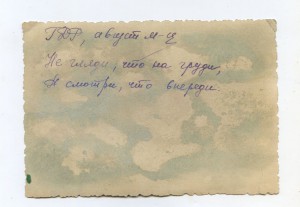 ГДР, август м-ц
Не гляди, что на груди,
А смотри, что впереди.